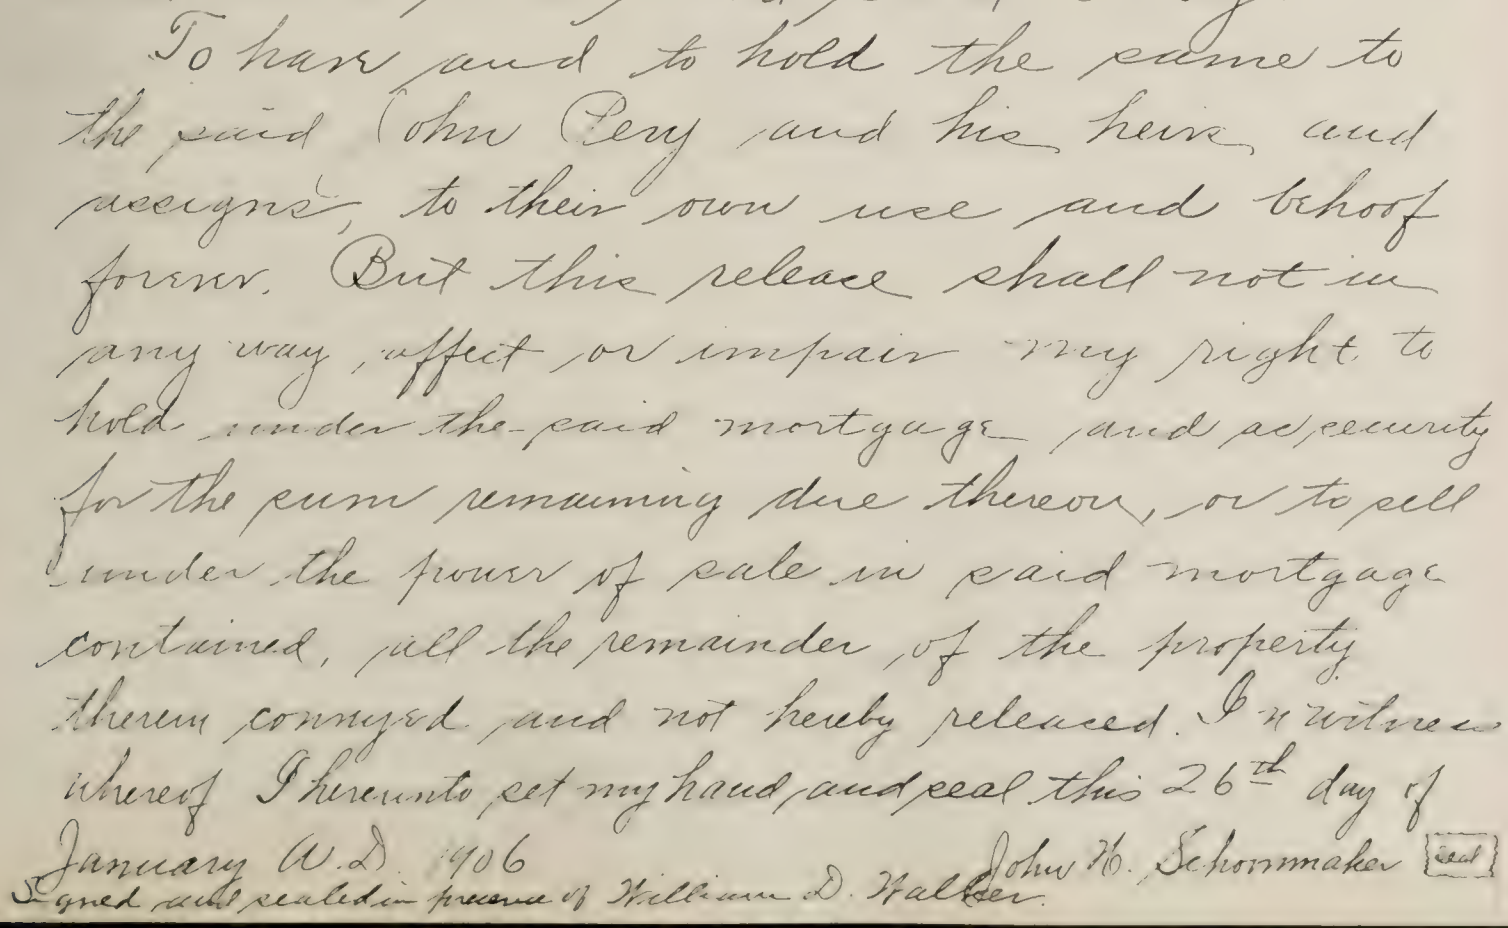 To have and to hold the same to
the said John Pery and his heirs and
assigns, to their own use and behoof
forever. But this release shall not in
any way affect or impair my right to
hold under the said mortgage and as security
for the sum remaining due thereon, or to sell
under the power of sale in said mortgage
contained, all the remainder of the property
therein conveyed and not hereby released. In witness
whereof I hereunto set my hand and seal this 26th day of
January A.D. 1906 John H. Schoonmaker seal
Signed and sealed in presence of William D. Walker.